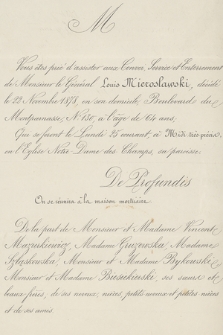 M
Vous êtes prié d'assister aux Convoi, Service et Enterrement
de Monsieur le Général Louis Mieroslawski, décédé
le 22 Novembre 1878, en son domicile, Boulevard du
Montparnasse, N° 150, à l'âge de 64 ans,
Qui se feront le Lundi 25 courant, à Midi très-précis,
en l'Eglise Notre-Dame des Champs, sa paroisse.
De Profundis
On se réunira à la maison mortuaire.
De la part de Monsieur et Madame Vincent
Mazurkiewicz, Madame Madame
Monsieur et Madame Bykowski
Monsieur et Madame ses sœurs et
beaux-frères, de ses neveux, nièces, petits-neveux et petites-nièces
et de ses amis